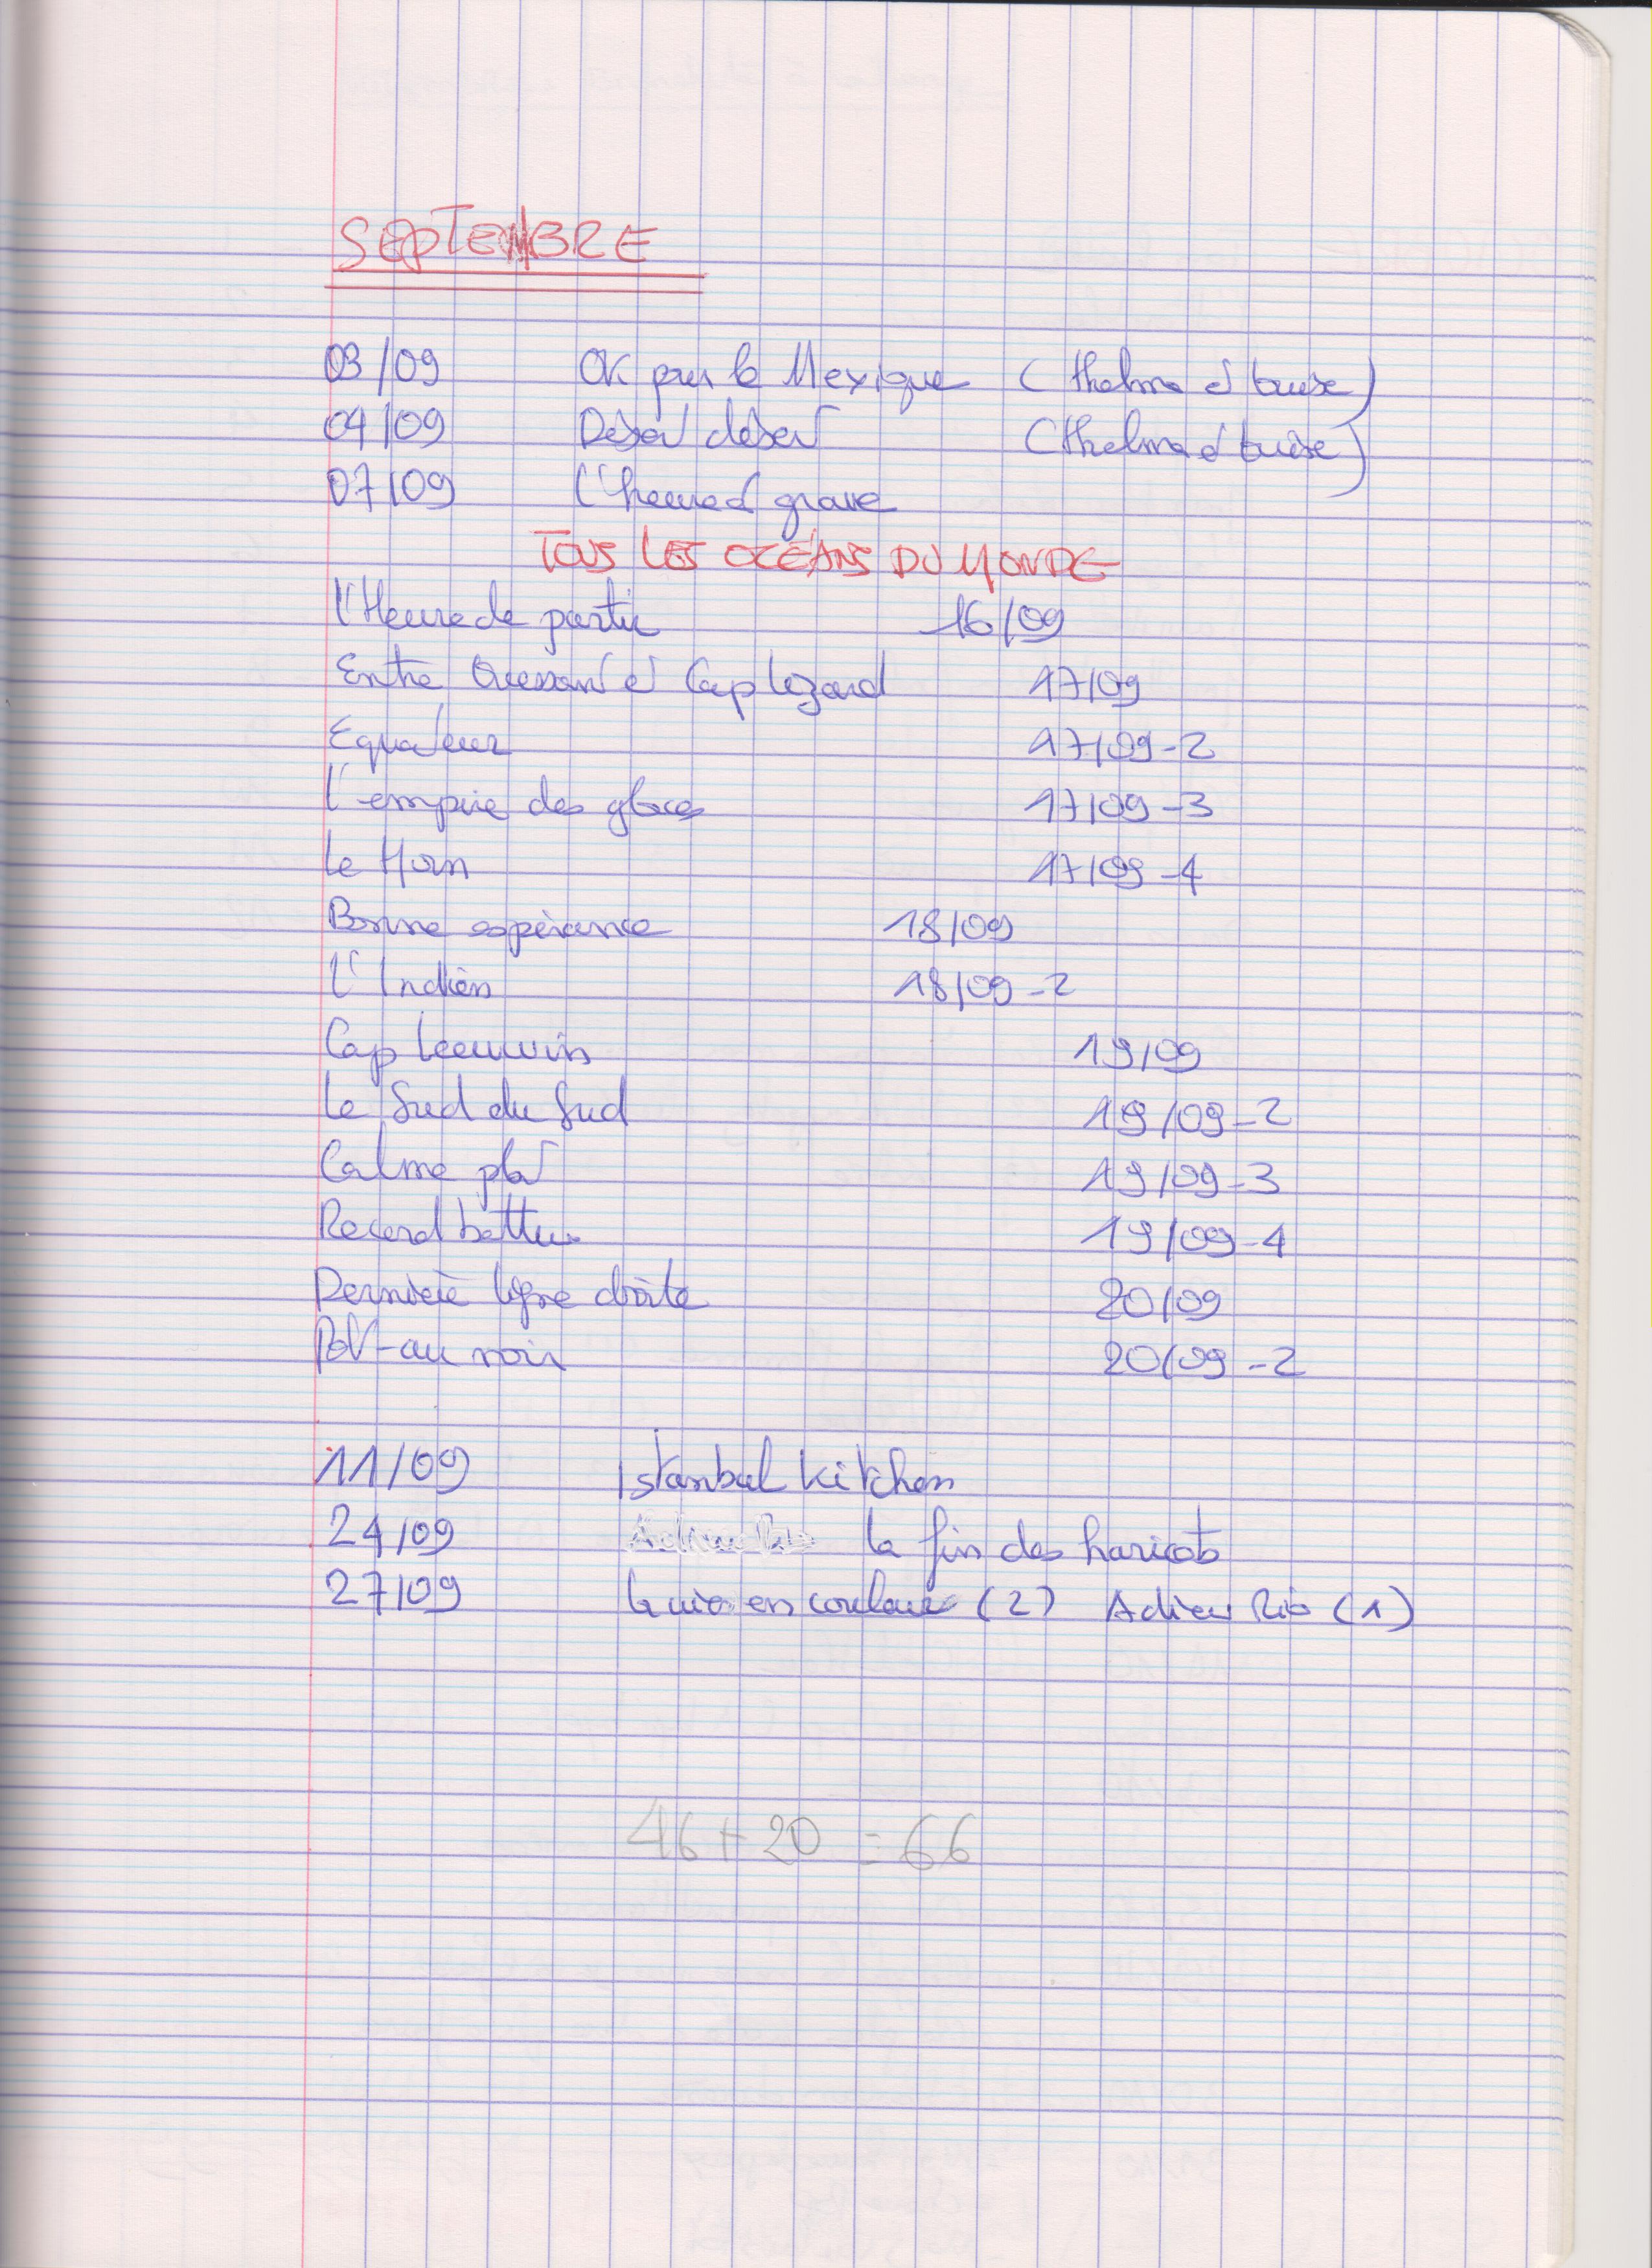 SEPTEMBRE
03/09 OK pour le Mexique (Thelma et Louise)
04/09 Désert désert (Thelma et Louise)
07/09 L'heure est grave
TOUS LES OCÉANS DU MONDE
L'Heure de partir 16/09
Entre Ouessant et Cap Lézard 17/09
Equateur 17/09-2
L'empire des glaces 17/09-3
Le Horn 17/09-4
Bonne espérance 18/09
L'Indien 18/09-2
Cap Leeuwin 19/09
Le Sud du Sud 19/09-2
Calme plat 19/09-3
Record battu 19/09-4
Dernière ligne droite 20/09
Pot-au noir 20/09-2
11/09 Istanbul Kitchen
24/09 la fin des haricots
27/09 la vie en couleur (2) Adieu Rio (1)
46+20 = 66